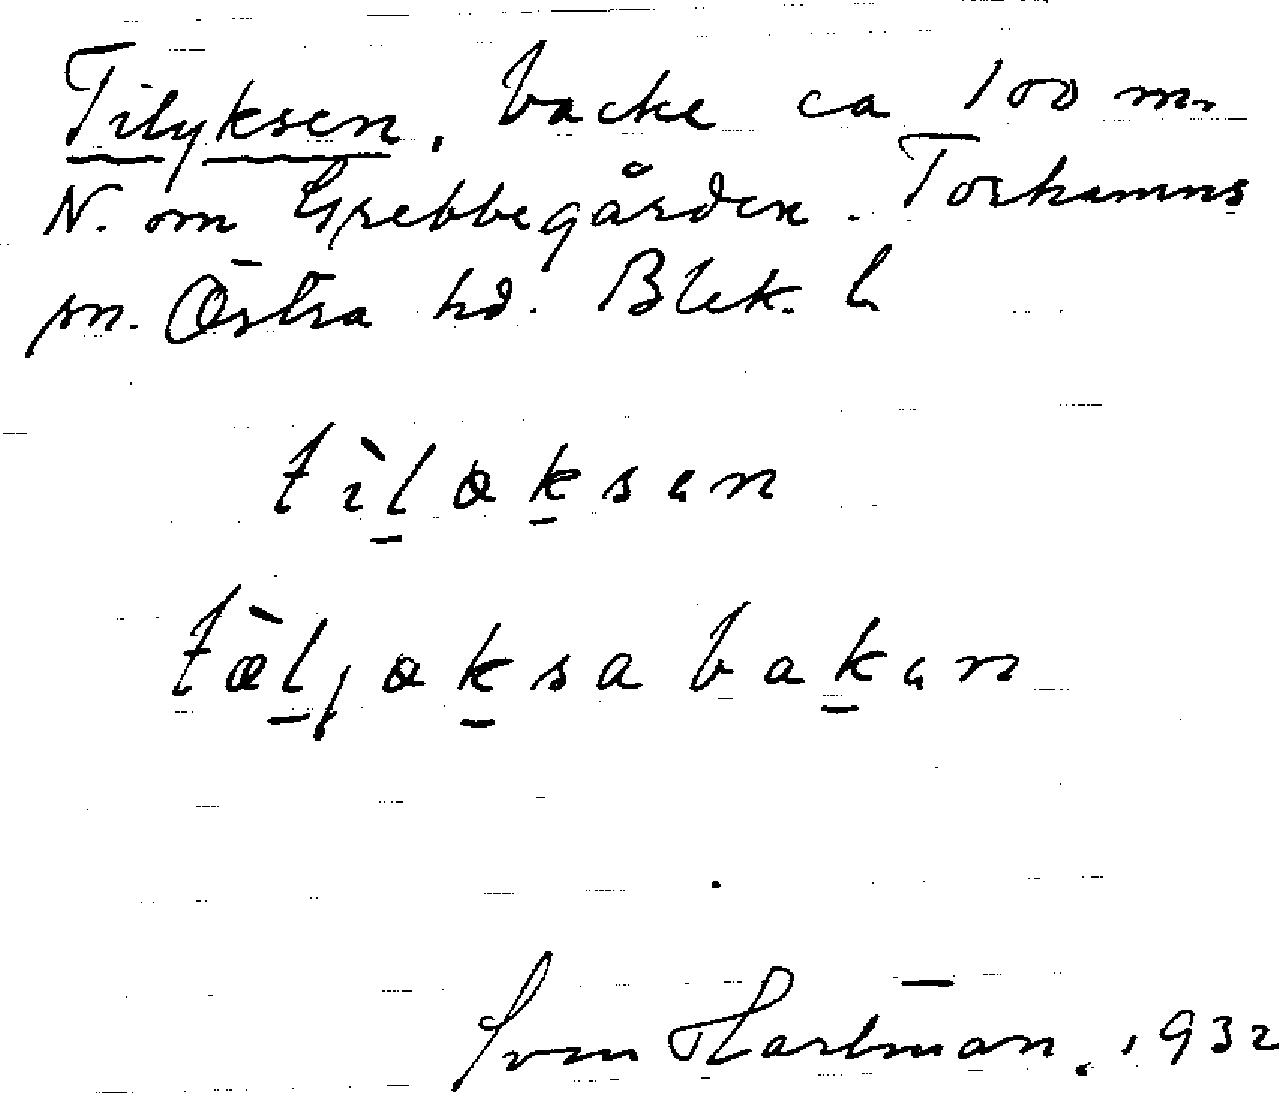 Tilyksen. backe ca 100 m.
N. om Grebbegården. Torhamns
sn. Östra hd. Blek. l.
tìløksen
tæ̀ljøksabakan
Sven Hartman. 1932